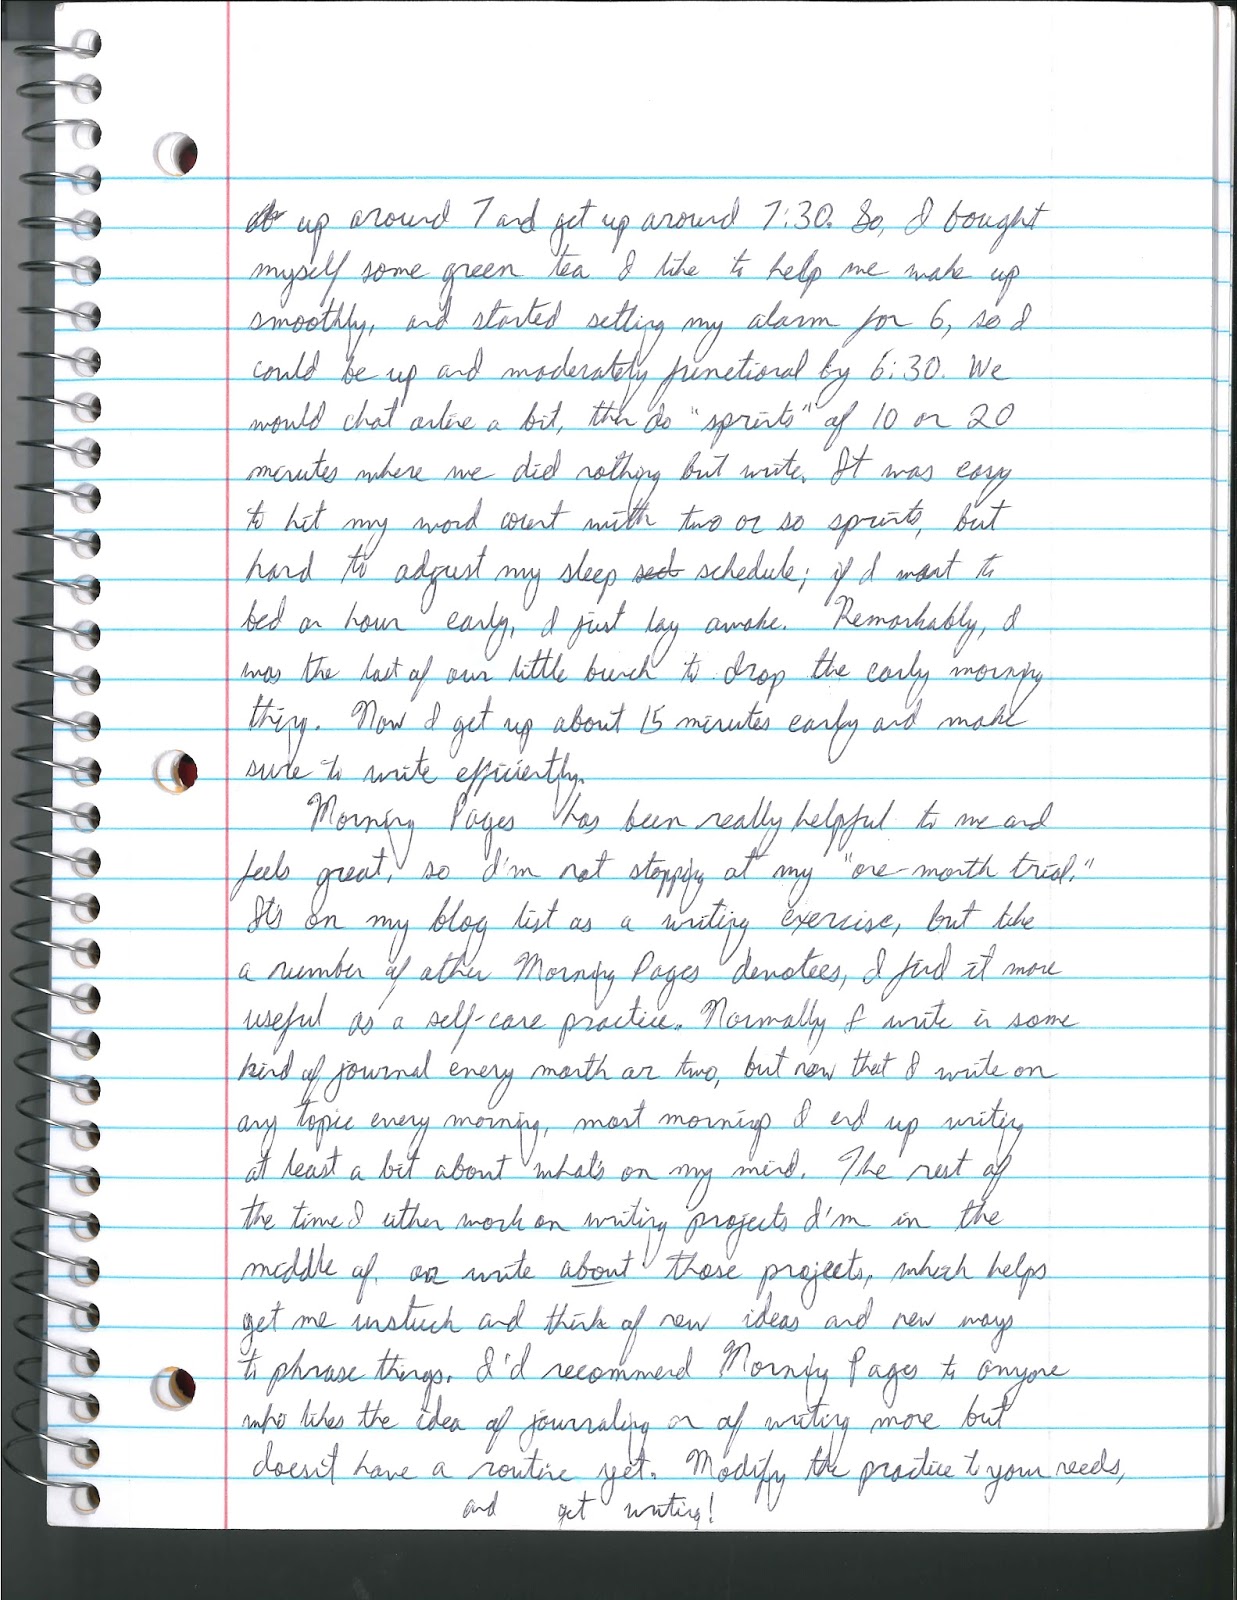 up around 7 and get up around 7:30. So, I bought
myself some green tea I like to help me wake up
smoothly, and started setting my alarm for 6, so I
could be up and moderately functional by 6:30. We
would chat online a bit, then do "sprints" of 10 or 20
minutes where we did nothing but write. It was easy
to hit my word count with two or so sprints, but
hard to adjust my sleep sed schedule; if I went to
bed an hour early, I just lay awake. Remarkably, I
was the last of our little bunch to drop the early morning
thing. Now I get up about 15 minutes early and make
sure to write efficiently.
Morning Pages has been really helpful to me and
feels great, so I'm not stopping at my "one-month trial."
It's on my blog list as a writing exercise, but like
a number of other Morning Pages devotees, I find it more
useful as a self-care practice. Normally I write in some
kind of journal every month or two, but now that I write on
any topic every morning, most mornings I end up writing
at least a bit about what's on my mind. The rest of
the time I either work on writing projects I'm in the
middle of, or write about those projects, which helps
get me unstuck and think of new ideas and new ways
to phrase things. I'd recommend Morning Pages to anyone
who likes the idea of journaling or of writing more but
doesn't have a routine yet. Modify the practice to your needs,
and get writing!